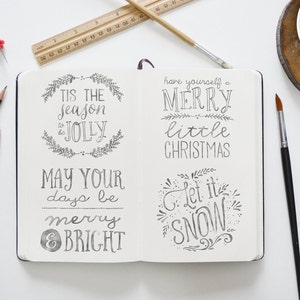 TIS THE
season
to be
JOLLY
MAY YOUR
days be
merry
& BRIGHT
have yourself a
MERRY
little
CHRISTMAS
let it
SNOW